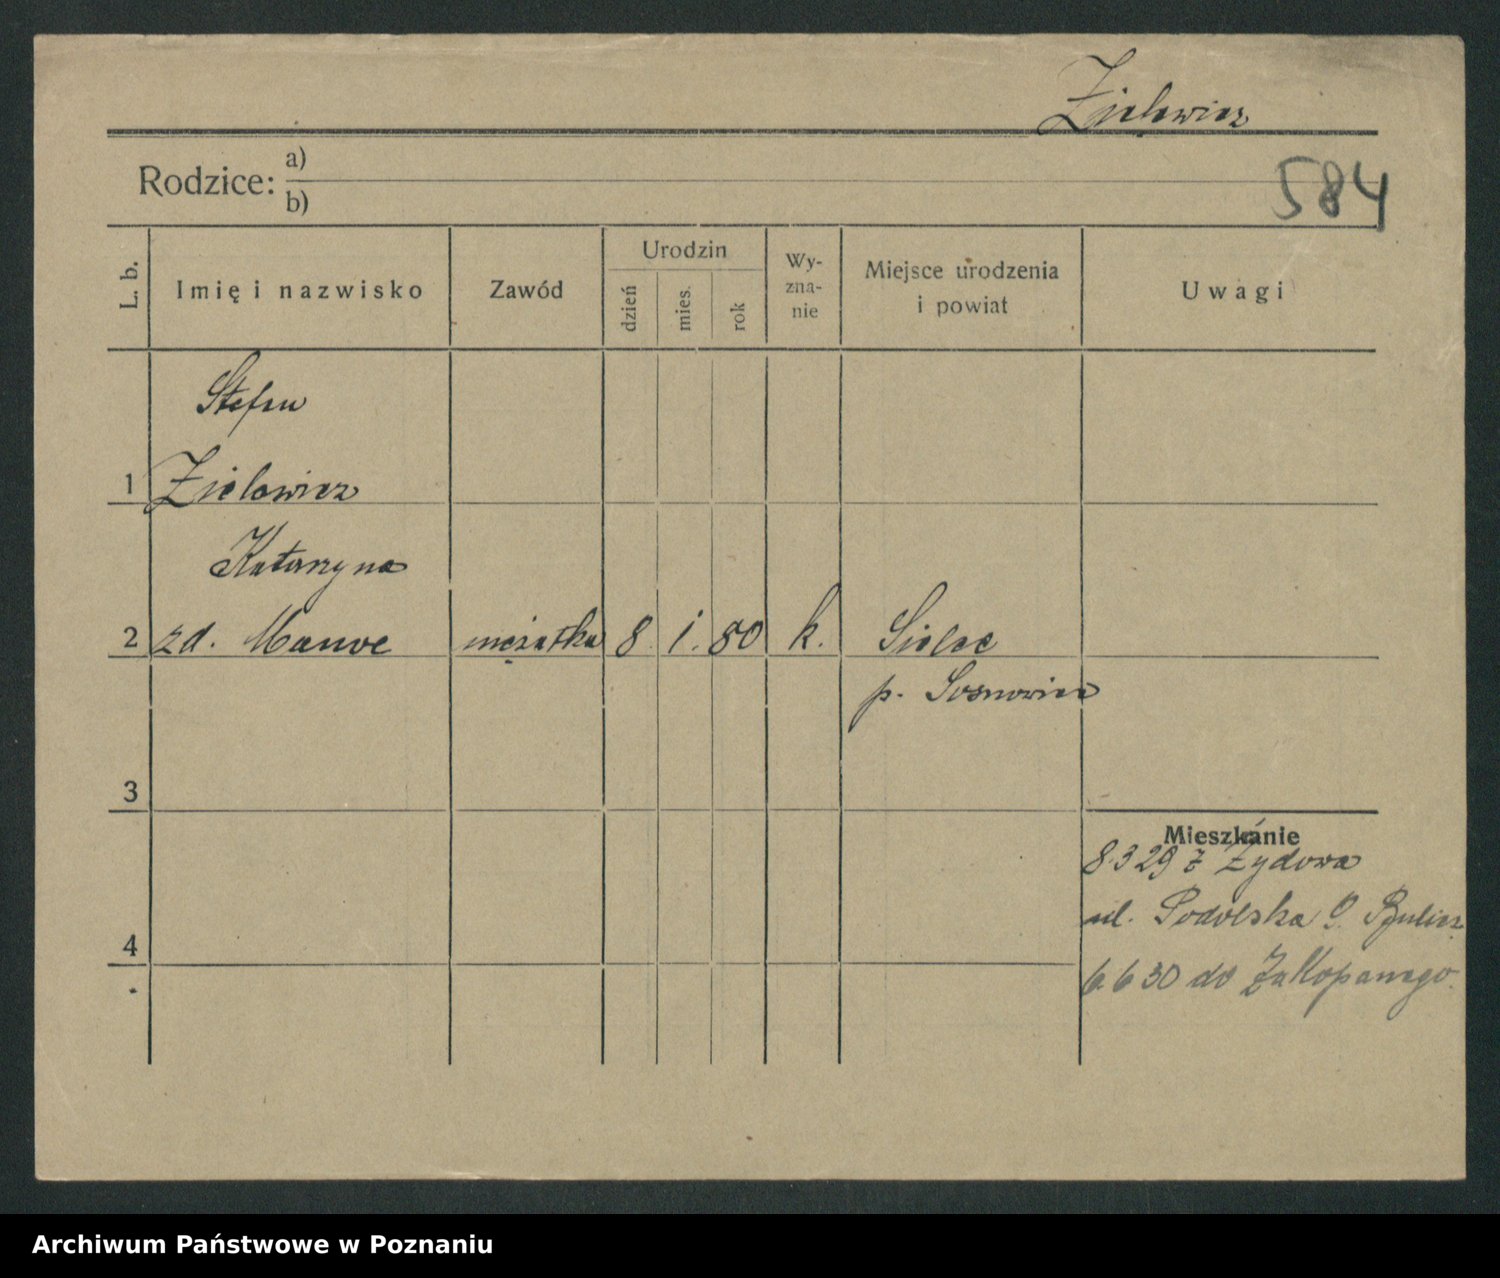 Zielewicz
Rodzice: a)
b)
584
L. b.
Imię i nazwisko
Zawód
Urodzin
dzień
mies.
rok
Wy-
zna-
nie
Miejsce urodzenia
i powiat
Uwagi
Stefan
1 Zielewicz
Katarzyna
2 zd. Manve mężatka 8. 1. 80 k. Sielce
p. Sosnowiec
3
Mieszkanie
8.3 29 z Żydowa
ul. Podolska 9.
4
6.6 30 do Zakopanego.
Archiwum Państwowe w Poznaniu